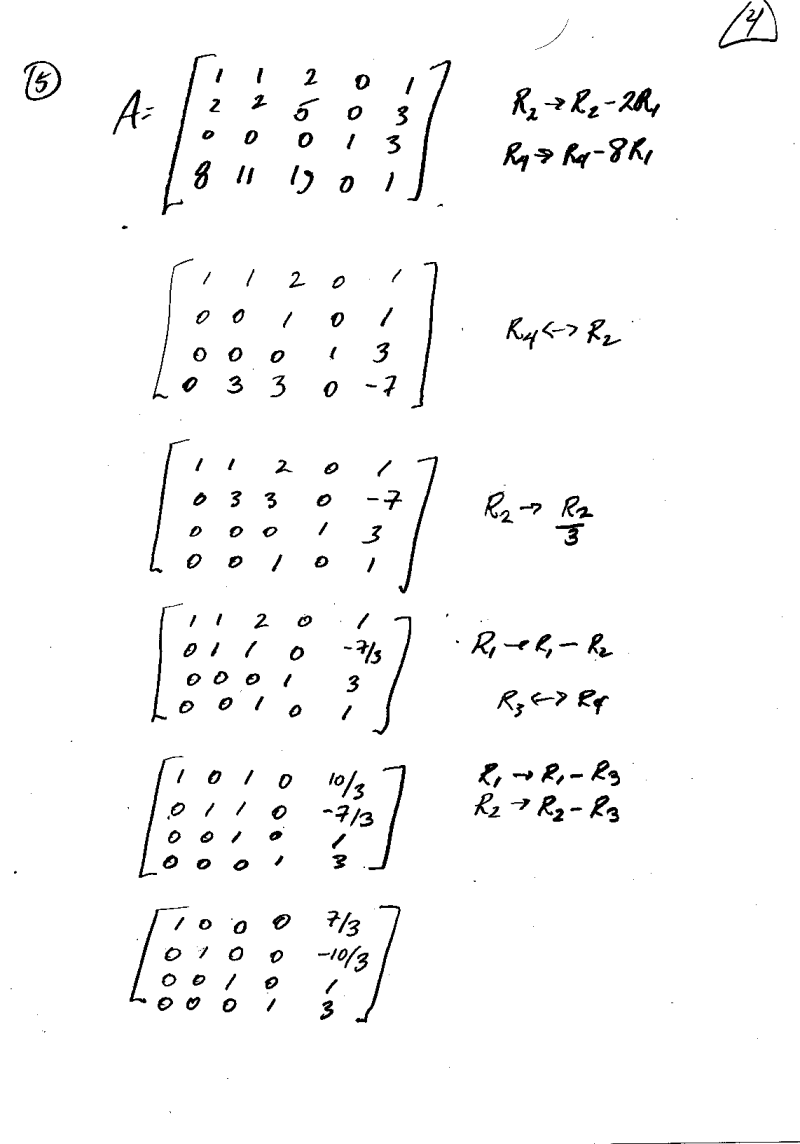 4
5
A= [ 1 1 2 0 1
2 2 5 0 3
0 0 0 1 3
8 11 19 0 1 ]
R₂ → R₂ - 2R₁
R₄ → R₄ - 8R₁
[ 1 1 2 0 1
0 0 1 0 1
0 0 0 1 3
0 3 3 0 -7 ]
R₄ <-> R₂
[ 1 1 2 0 1
0 3 3 0 -7
0 0 0 1 3
0 0 1 0 1 ]
R₂ → R₂/3
[ 1 1 2 0 1
0 1 1 0 -7/3
0 0 0 1 3
0 0 1 0 1 ]
R₁ → R₁ - R₂
R₃ <-> R₄
[ 1 0 1 0 10/3
0 1 1 0 -7/3
0 0 1 0 1
0 0 0 1 3 ]
R₁ → R₁ - R₃
R₂ → R₂ - R₃
[ 1 0 0 0 7/3
0 1 0 0 -10/3
0 0 1 0 1
0 0 0 1 3 ]